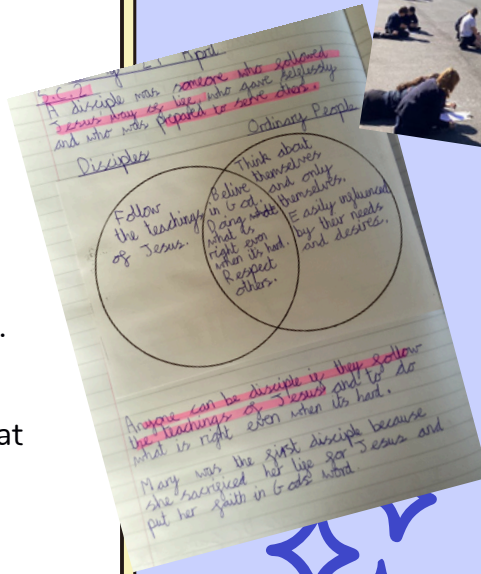 .
at
April
A disciple was someone who followed
Jesus way of life, who gave selflessly
and who was prepared to serve others.
Disciples
Ordinary People
Follow
the teachings
of Jesus.
Belive
in God.
Doing what
is
right even
when its hard.
Respect
others.
Think about
themselves
and only
themselves.
Easily influenced
by their needs
and desires.
Anyone can be disciple is they follow
the teachings of Jesus and to do
what is right even when its hard.
Mary was the first disciple because
she sacrificed her life for Jesus and
put her faith in Gods word